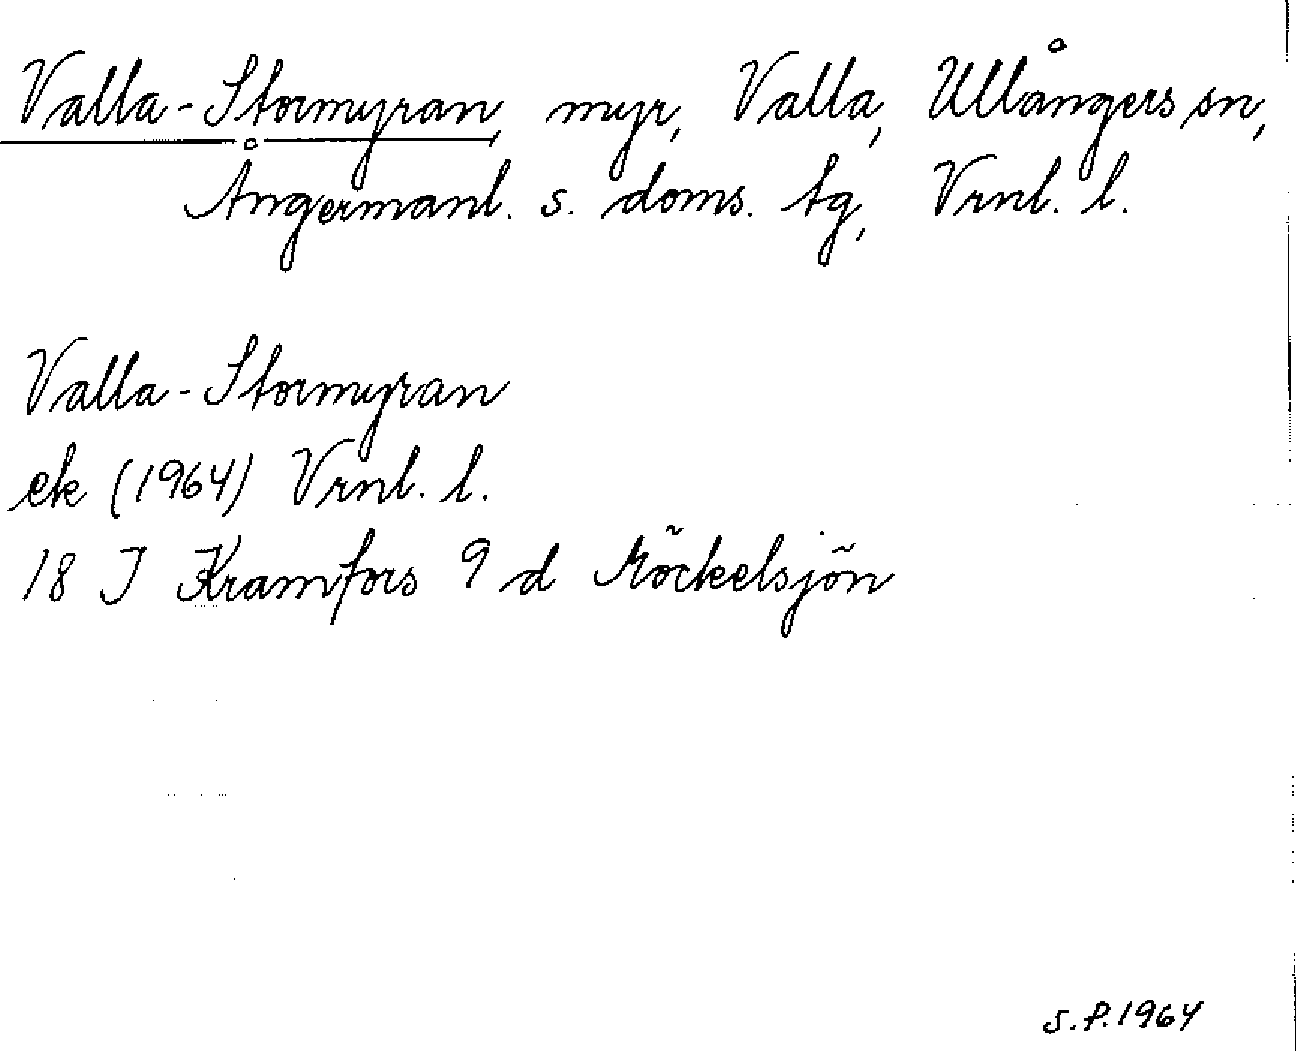 Valla-Stormyran, myr, Valla, Ullångers sn,
Ångermanl. s. doms. tg, Vrnl. l.
Valla-Stormyran
ek (1964) Vrnl. l.
18 J Kramfors 9 d Möckelsjön
S.P.1964